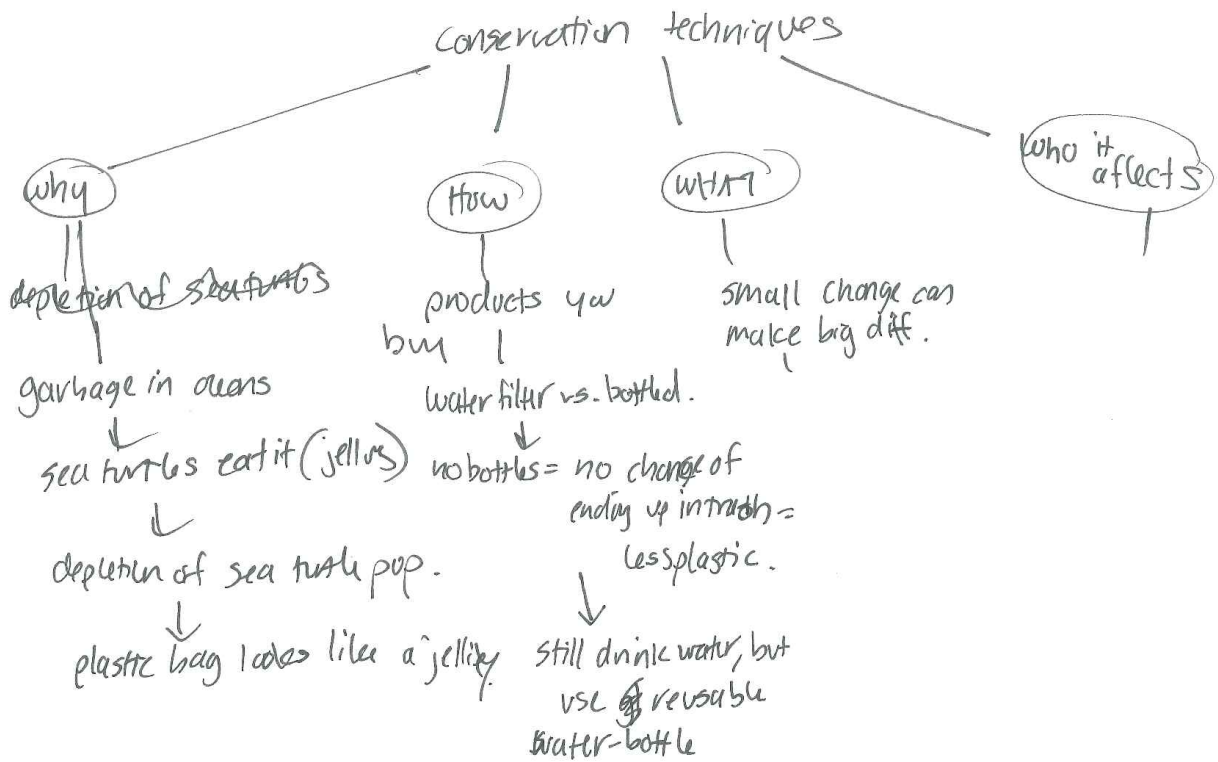 conservation techniques
why
How
WHAT
who it
affects
depletion of sea turtles
garbage in oceans
sea turtles eat it (jellys)
depletion of sea turtle pop.
plastic bag looks like a jelly
products you
buy
water filter vs. bottled.
no bottles = no change of
ending up in trash =
less plastic.
still drink water, but
use reusable
water-bottle
small change can
make big diff.